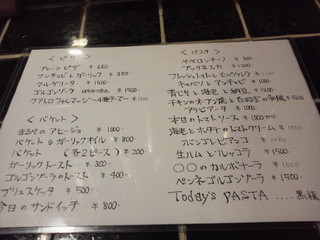 <ピザ>
プレーンピザ ¥650
アンチョビとガーリック ¥850
マルゲリータ ¥1500
ゴルゴンゾーラ はちみつ ¥1500
クアトロフォルマッジー4種チーズー ¥1500
<バケット>
まるべのアヒージョ ¥1000
バケット&ガーリックオイル ¥800
バケット (各2ピース) ¥200
ガーリックトースト ¥300
ゴルゴンゾーラのトースト ¥400
ブリュスケッタ ¥500
今日のサンドイッチ ¥800
<パスタ>
ペペロンチーノ ¥800
プッタネスカ ¥1200
フレッシュトマトとモッツァレラ
キャベツとアンチョビ ¥1000
青じそと海老と納豆 ¥1200
チキンのオーブン焼と自家製の和風 ¥1500
アラビアータ ¥1000
本日のトマトソース ¥1000
海老とホタテのトマトクリーム ¥1500
スパゴルピアンコ ¥1500
生ハムとルッコラ ¥1500
○○のカルボナーラ ¥1500
ペンネゴルゴンゾーラ ¥1500
Today's PASTA .... 黒板